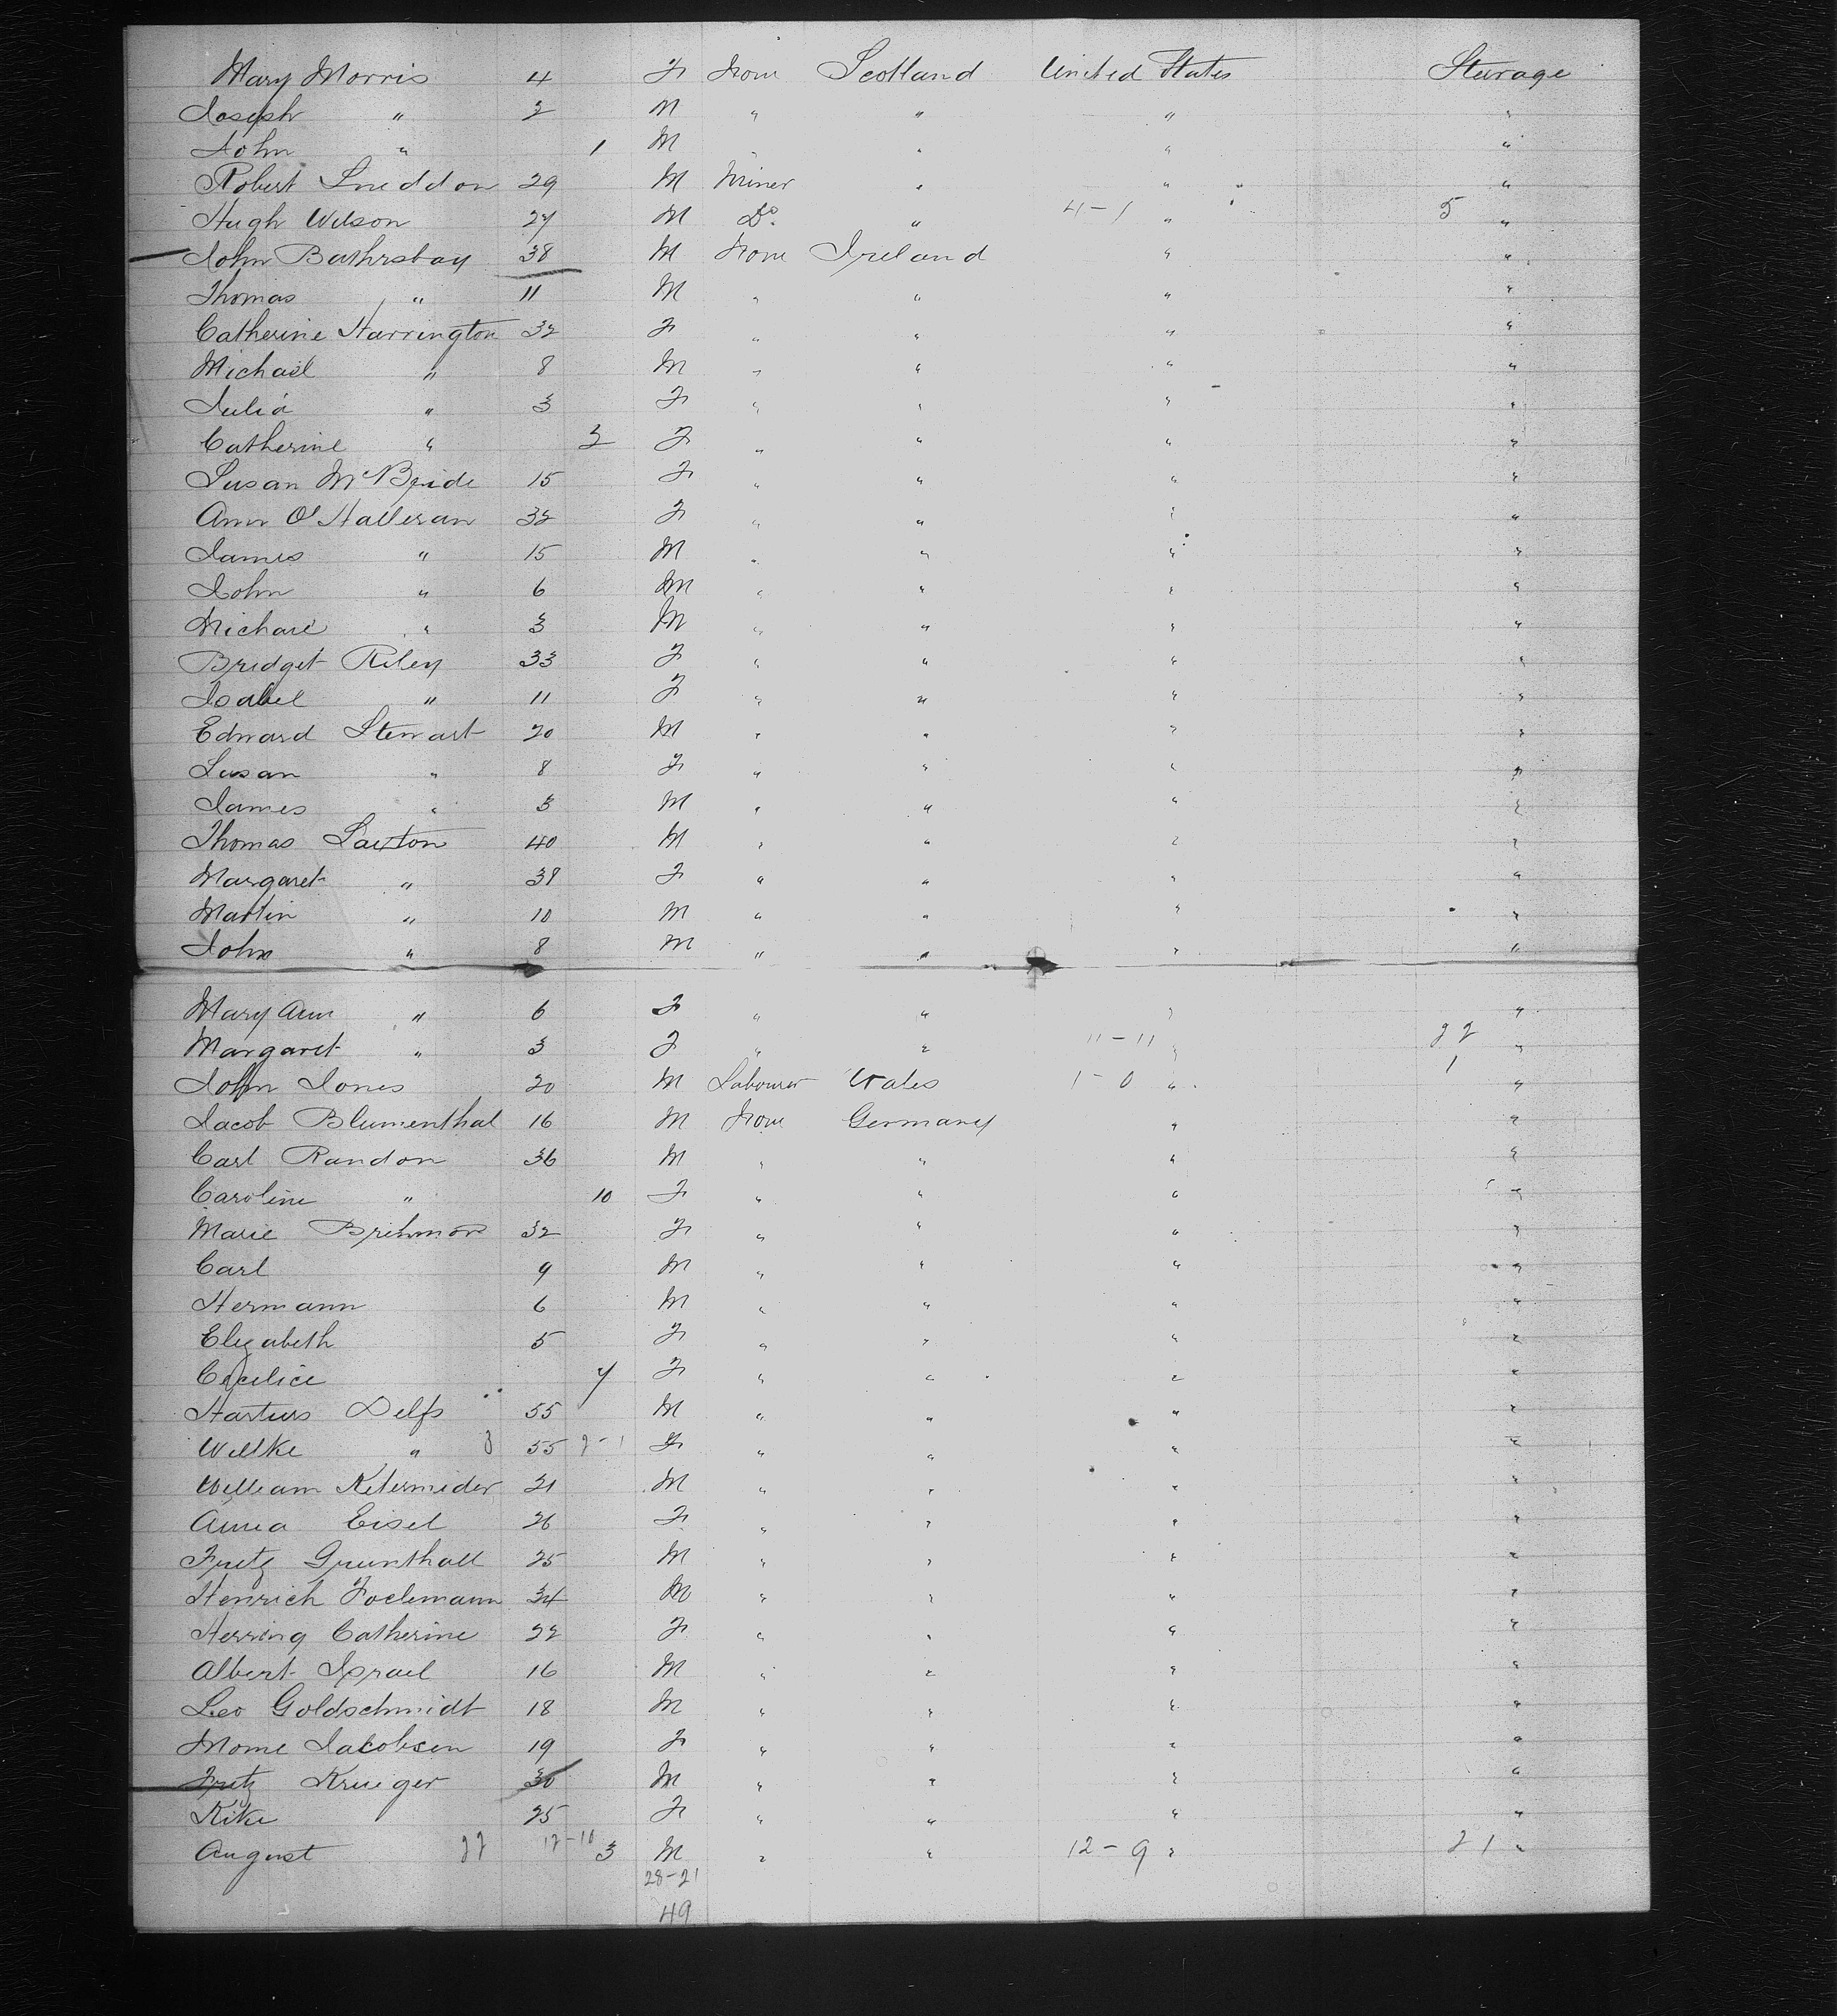 Mary Morris 4 F From Scotland United States Sturage
Joseph " 2 M " " " "
John " 1 M " " " "
Robert Sneddon 29 M Miner " " "
Hugh Wilson 27 M Do. " 4-1 " 5 "
John 38 M From Ireland " "
Thomas " 11 M " " " "
Catherine Harrington 32 F " " " "
Michael " 8 M " " " "
Julia " 3 F " " " "
Catherine " 3 F " " " "
Susan McBride 15 F " " " "
Ann O'Halleran 32 F " " " "
James " 15 M " " " "
John " 6 M " " " "
Michael " 3 M " " " "
Bridget Riley 33 F " " " "
Isabel " 11 F " " " "
Edward Stewart 20 M " " " "
Susan " 8 F " " " "
James " 3 M " " " "
Thomas Saxton 40 M " " " "
Margaret " 38 F " " " "
Martin " 10 M " " " "
John " 8 M " " " "
Mary Ann " 6 F " " " "
Margaret " 3 F " " 11-11 " 22 "
John Jones 20 M Labourer Wales 1-0 " 1 "
Jacob Blumenthal 16 M From Germany " "
Carl Randon 36 M " " " "
Caroline " 10 F " " " "
Marie 32 F " " " "
Carl 9 M " " " "
Hermann 6 M " " " "
Elizabeth 5 F " " " "
Cecelice 7 F " " " "
Delfs 55 M " " " "
Willke " 3 55 2-1 F " " " "
William 21 M " " " "
Anna Eisel 26 F " " " "
Fritz Grunthall 25 M " " " "
Henrich Foelemann 34 M " " " "
Herring Catherine 22 F " " " "
Albert Israel 16 M " " " "
Leo Goldschmidt 18 M " " " "
Mome Jacobsen 19 F " " " "
Fritz Krueger 30 M " " " "
Rike 25 F " " " "
August 22 12-10 3 M " " 12-9 " 21 "
28-21
49